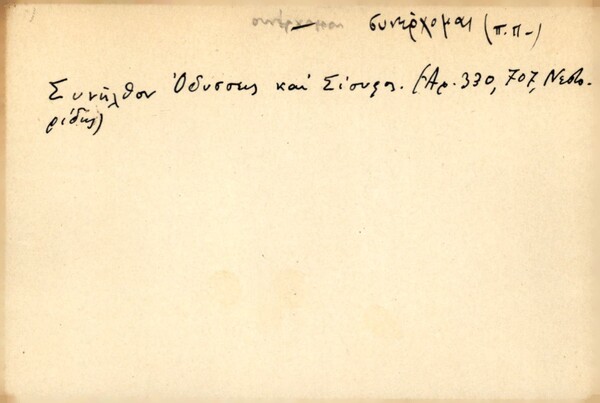 συνέρχομαι (π.π-)
Συνῆλθον Ὀδυσσεὺς καὶ Σίσυφος. (Ἀρ. 330, 707, Νεστο-
ρίδης)